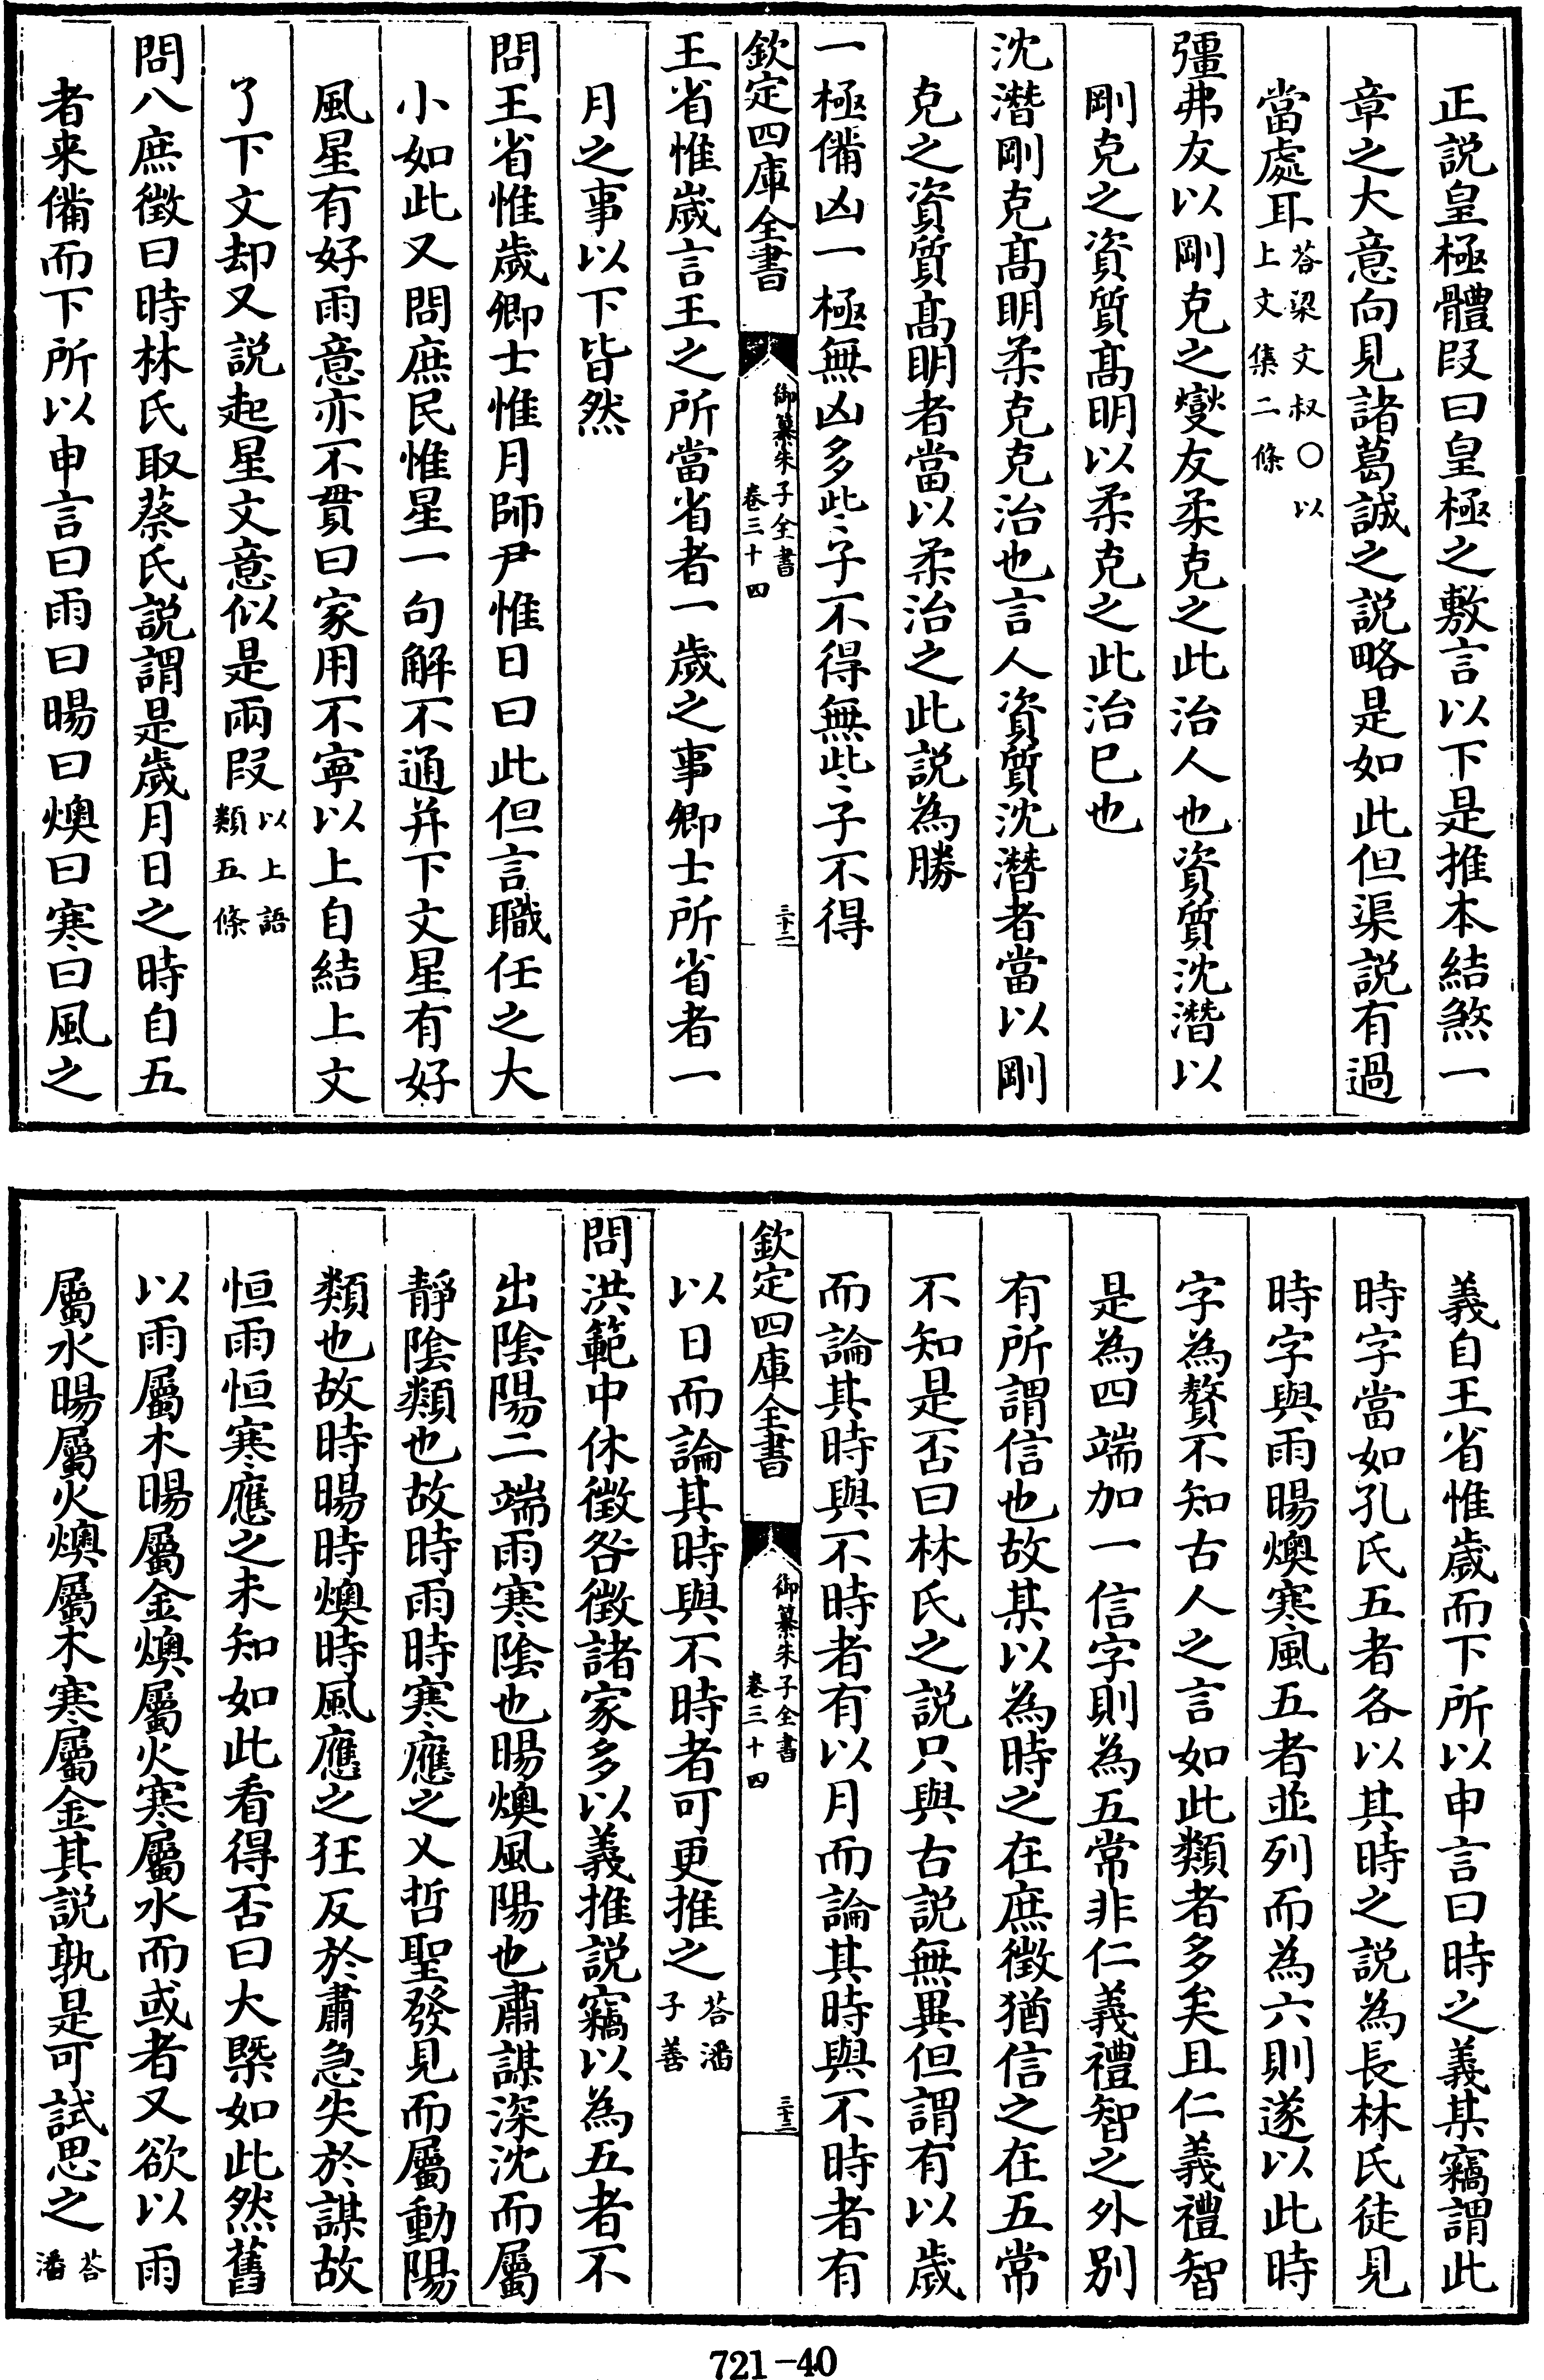 正説皇極體叚曰皇極之敷言以下是推本結煞一
章之大意向見諸葛誠之説略是如此但渠説有過
當處耳答梁文叔〇以
上文集二條
彊弗友以剛克之爕友柔克之此治人也資質沈潛以
剛克之資質髙明以柔克之此治已也
沈潛剛克髙明柔克克治也言人資質沈潛者當以剛
克之資質髙明者當以柔治之此説為勝
一極備凶一極無凶多些子不得無些子不得
欽定四庫全書
御纂朱子全書
卷三十四
三十二
王省惟嵗言王之所當省者一歲之事卿士所省者一
月之事以下皆然
問王省惟歲卿士惟月師尹惟日曰此但言職任之大
小如此又問庶民惟星一句解不通并下文星有好
風星有好雨意亦不貫曰家用不寜以上自結上文
了下文却又説起星文意似是兩叚以上語
類五條
問八庶徴曰時林氏取蔡氏説謂是歲月日之時自五
者来備而下所以申言曰雨曰暘曰燠曰寒曰風之
義自王省惟歲而下所以申言曰時之義某竊謂此
時字當如孔氏五者各以其時之説為長林氏徒見
時字與雨暘燠寒風五者並列而為六則遂以此時
字為贅不知古人之言如此類者多矣且仁義禮智
是為四端加一信字則為五常非仁義禮智之外别
有所謂信也故某以為時之在庶徴猶信之在五常
不知是否曰林氏之説只與古説無異但謂有以歲
而論其時與不時者有以月而論其時與不時者有
欽定四庫全書
御纂朱子全書
卷三十四
三十三
以日而論其時與不時者可更推之答潘
子善
問洪範中休徴咎徴諸家多以義推説竊以為五者不
出陰陽二端雨寒陰也暘燠風陽也肅謀深沈而屬
靜陰類也故時雨時寒應之乂哲聖發見而屬動陽
類也故時暘時燠時風應之狂反於肅急失於謀故
恒雨恒寒應之未知如此看得否曰大槩如此然舊
以雨屬木暘屬金燠屬火寒屬水而或者又欲以雨
屬水暘屬火燠屬木寒屬金其説孰是可試思之答
潘
721-40